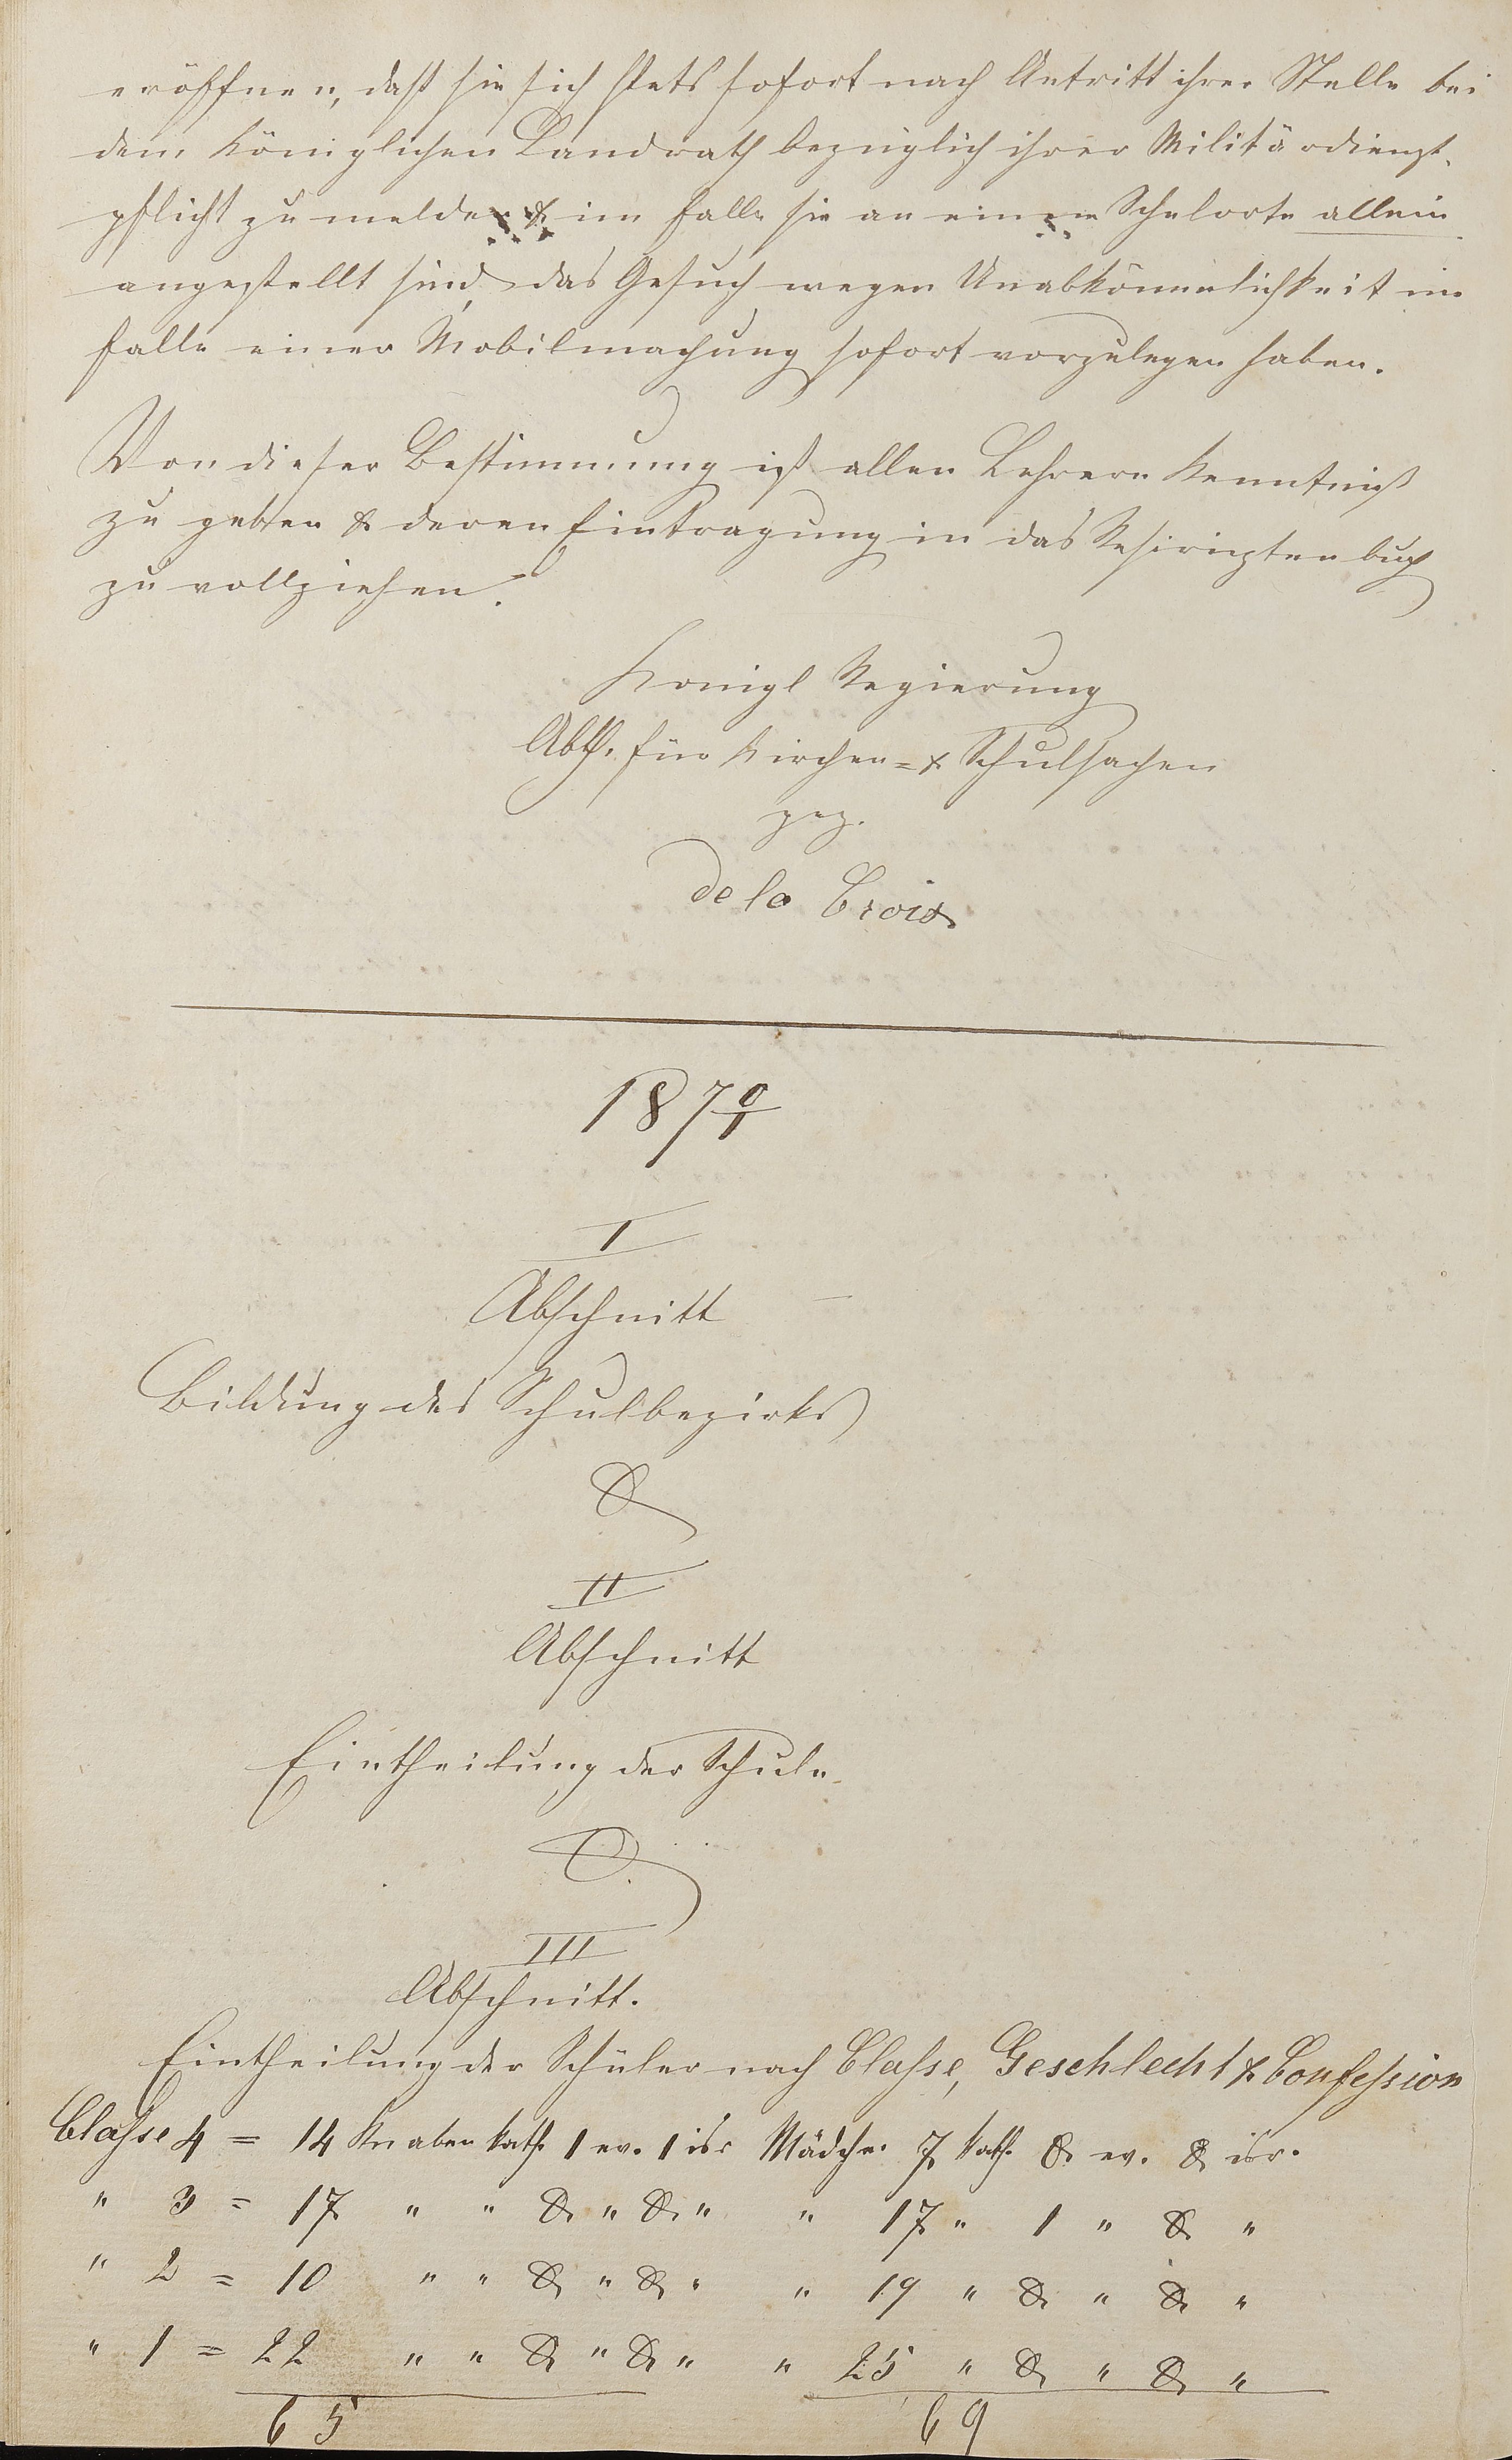 eröffnen, daß sie sich stets sofort nach Antritt ihrer Stelle bei
dem Königlichen Landrath bezüglich ihrer Militärdienst-
pflicht zu melden & im Falle sie an einem Schulorte allein
angestellt sind, das Gesuch wegen Unabkömmlichkeit im
Falle einer Mobilmachung sofort vorzulegen haben.
Von dieser Bestimmung ist allen Lehrern Kenntniß
zu geben & deren Eintragung in das Resciriptenbuch
zu vollziehen.
Königl Regierung
Abth. für Kirchen- & Schulsachen
gez.
de la Croix
1870/1
I
Abschnitt
Bildung des Schulbezirks
&
II
Abschnitt
Eintheilung der Schule
III
Abschnitt.
Eintheilung der Schüler nach Classe, Geschlecht & Confession
Classe 4 = 14 Knaben kath. 1 ev. 1 isr Mädchen 7 kath. & ev. & isr.
" 3 = 17 " " & " & " " 17 " 1 " & "
" 2 = 10 " " & " & " " 19 " & " & "
" 1 = 22 " " & " & " " 25 " & " & "
65 69